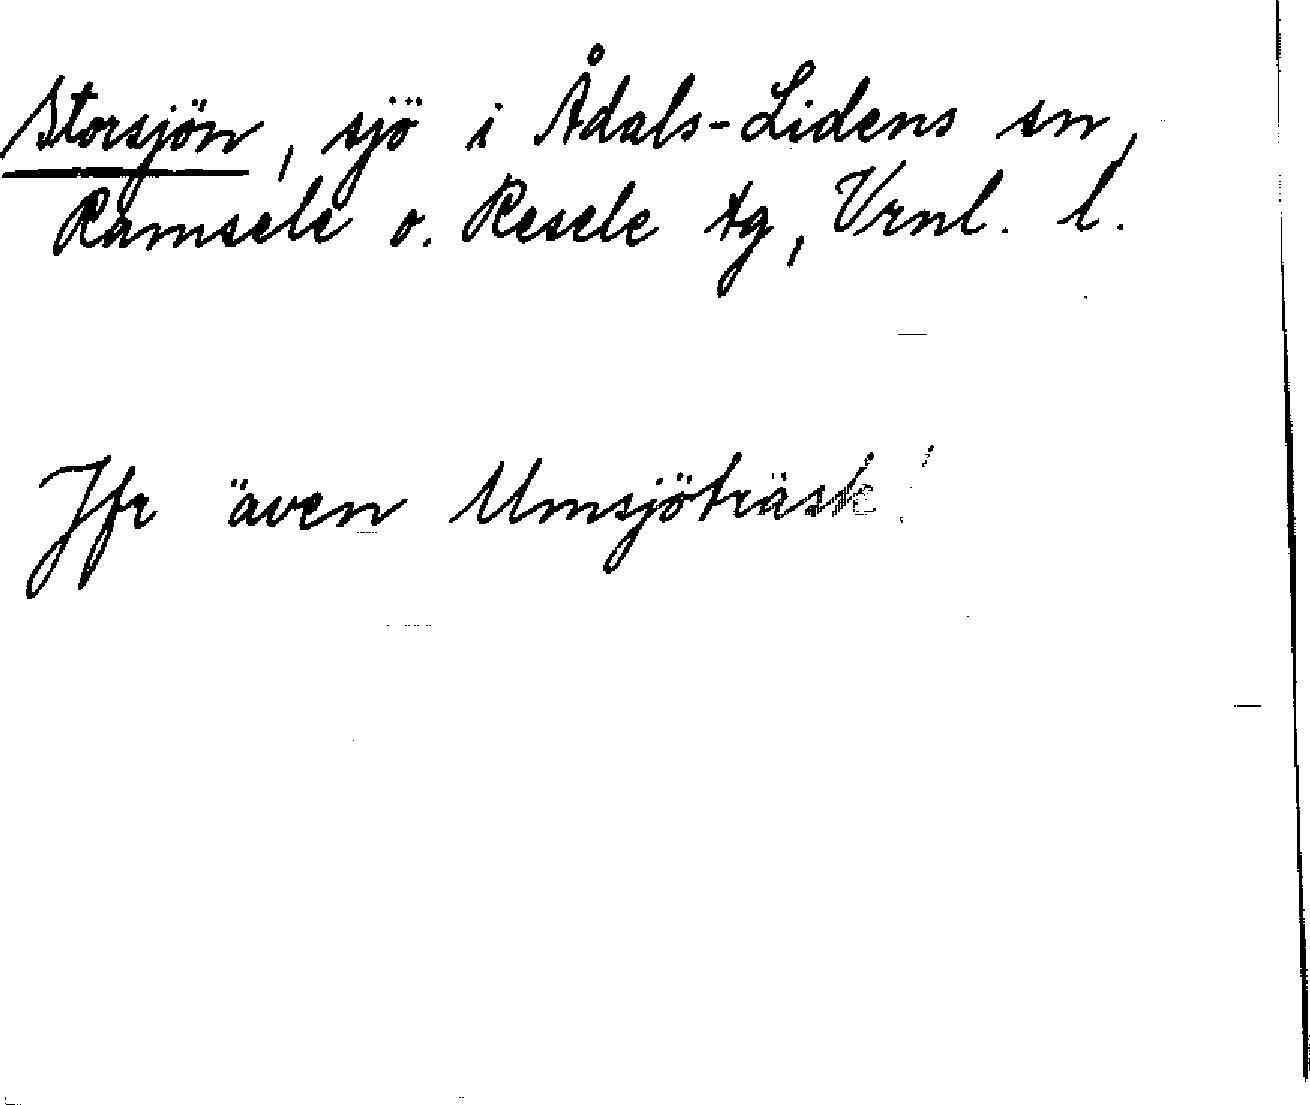 Storsjön, sjö i Ådals-Lidens sn,
Ramsele o. Resele tg, Vrnl. l.
Jfr även Umsjöträsk!